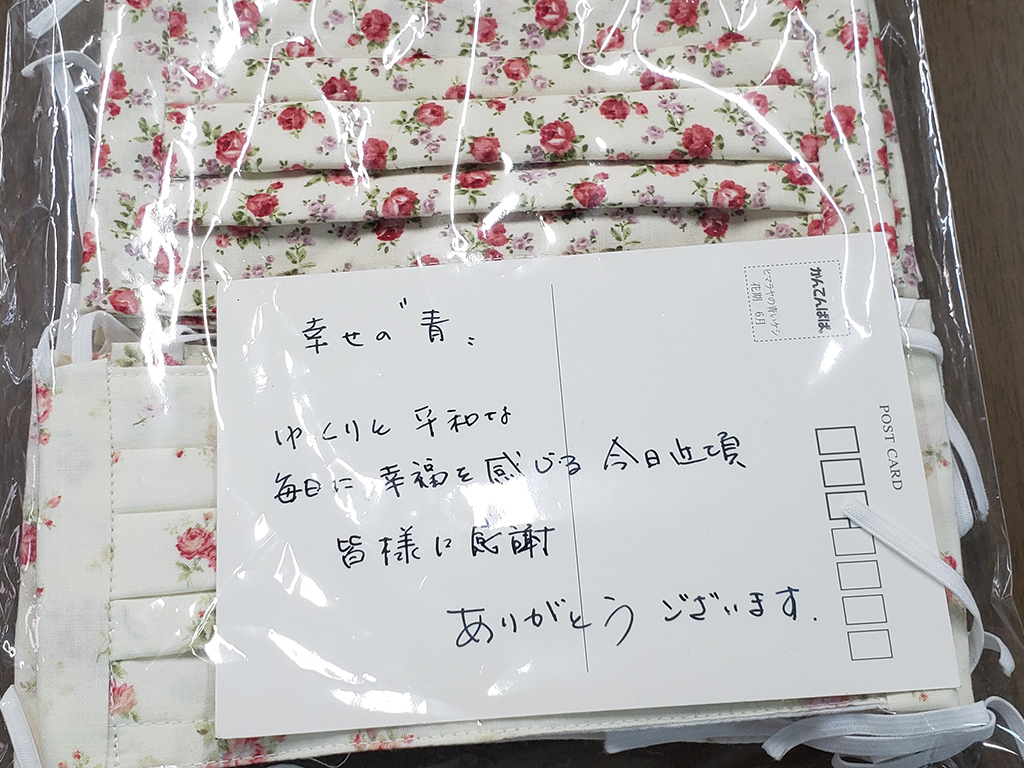 幸せの"青"
ゆっくりと平和な
毎日に幸福を感じる今日近頃
皆様に感謝
ありがとうございます.
かんてんぱぱ
ヒマラヤの青いケシ
花期 6月
POST CARD